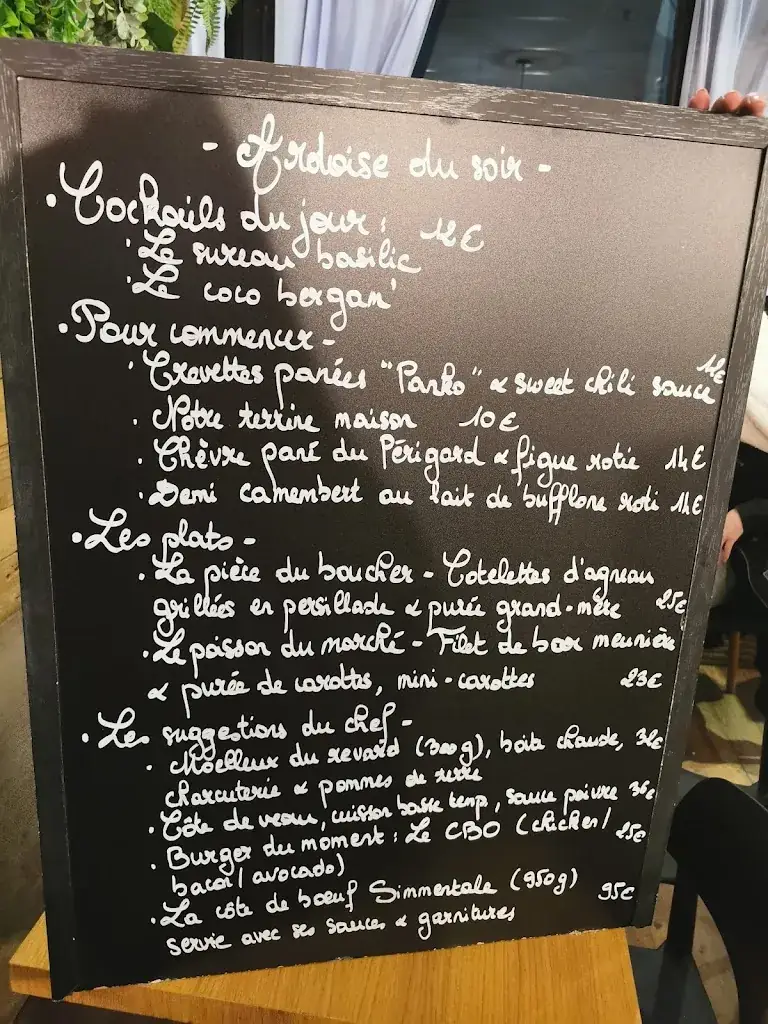 - Ardoise du soir -
• Cocktails du jour : 12€
· Le sureau basilic
· Le coco bergam'
• Pour commencer -
· Crevettes panées "Panko" & sweet chili sauce 12€
· Notre terrine maison 10€
· Chèvre pané du Périgord & figue rotie 14€
· Demi camembert au lait de bufflone roti 14€
• Les plats -
· La pièce du boucher - Cotelettes d'agneau
grillées en persillade & purée grand-mère 25€
· Le poisson du marché - Filet de bar meunière
& purée de carottes, mini-carottes 23€
• Les suggestions du chef -
· Moelleux du revard (300g), boite chaude, 32€
charcuterie & pommes de terre
· Côte de veau, cuisson basse temp, sauce poivre 36€
· Burger du moment : Le CBO (chicken/ 25€
bacon/avocado)
· La côte de bœuf Simmentale (950g) 95€
servie avec ses sauces & garnitures